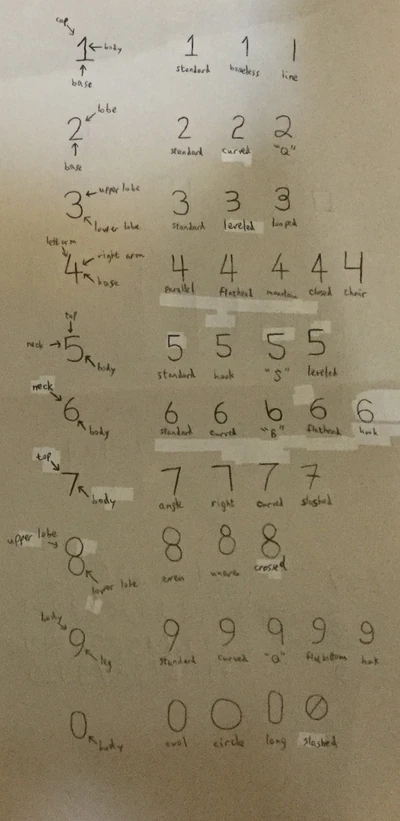 cap
1 body 1 1 1
base standard baseless line
2 lobe 2 2 2
base standard curved "Q"
3 upper lobe 3 3 3
lower lobe standard leveled looped
left arm
4 right arm 4 4 4 4 4
base parallel flathead mountain closed chair
top
neck 5 5 5 5 5
body standard hook "S" leveled
neck
6 6 6 6 6 6
body standard curved "B" flathead hook
top
7 7 7 7 7
body angle right curved slashed
upper lobe
8 8 8 8
lower lobe even uneven crossed
body
9 9 9 9 9 9
leg standard curved "Q" flatbottom hook
0 0 0 0 0
body oval circle long slashed